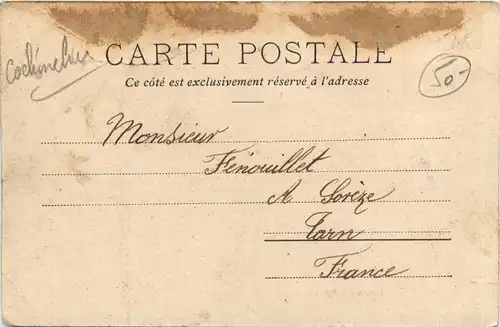 Cochinchine
CARTE POSTALE
50-
Ce côté est exclusivement réservé à l'adresse
Monsieur
Fénouillet
A Sorèze
Tarn
France